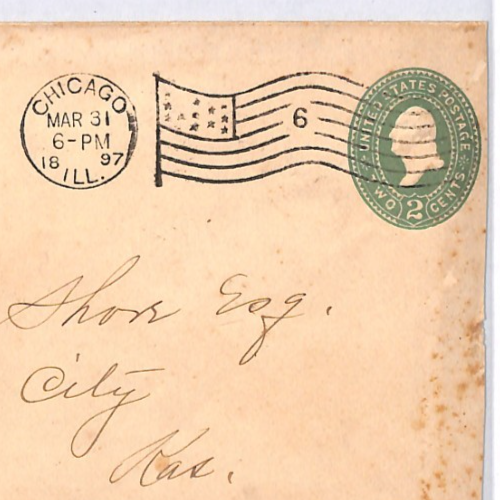 CHICAGO
MAR 31
6-PM
18 97
ILL.
6
UNITED STATES POSTAGE
TWO 2 CENTS
Shore Esq.
City
Kas.